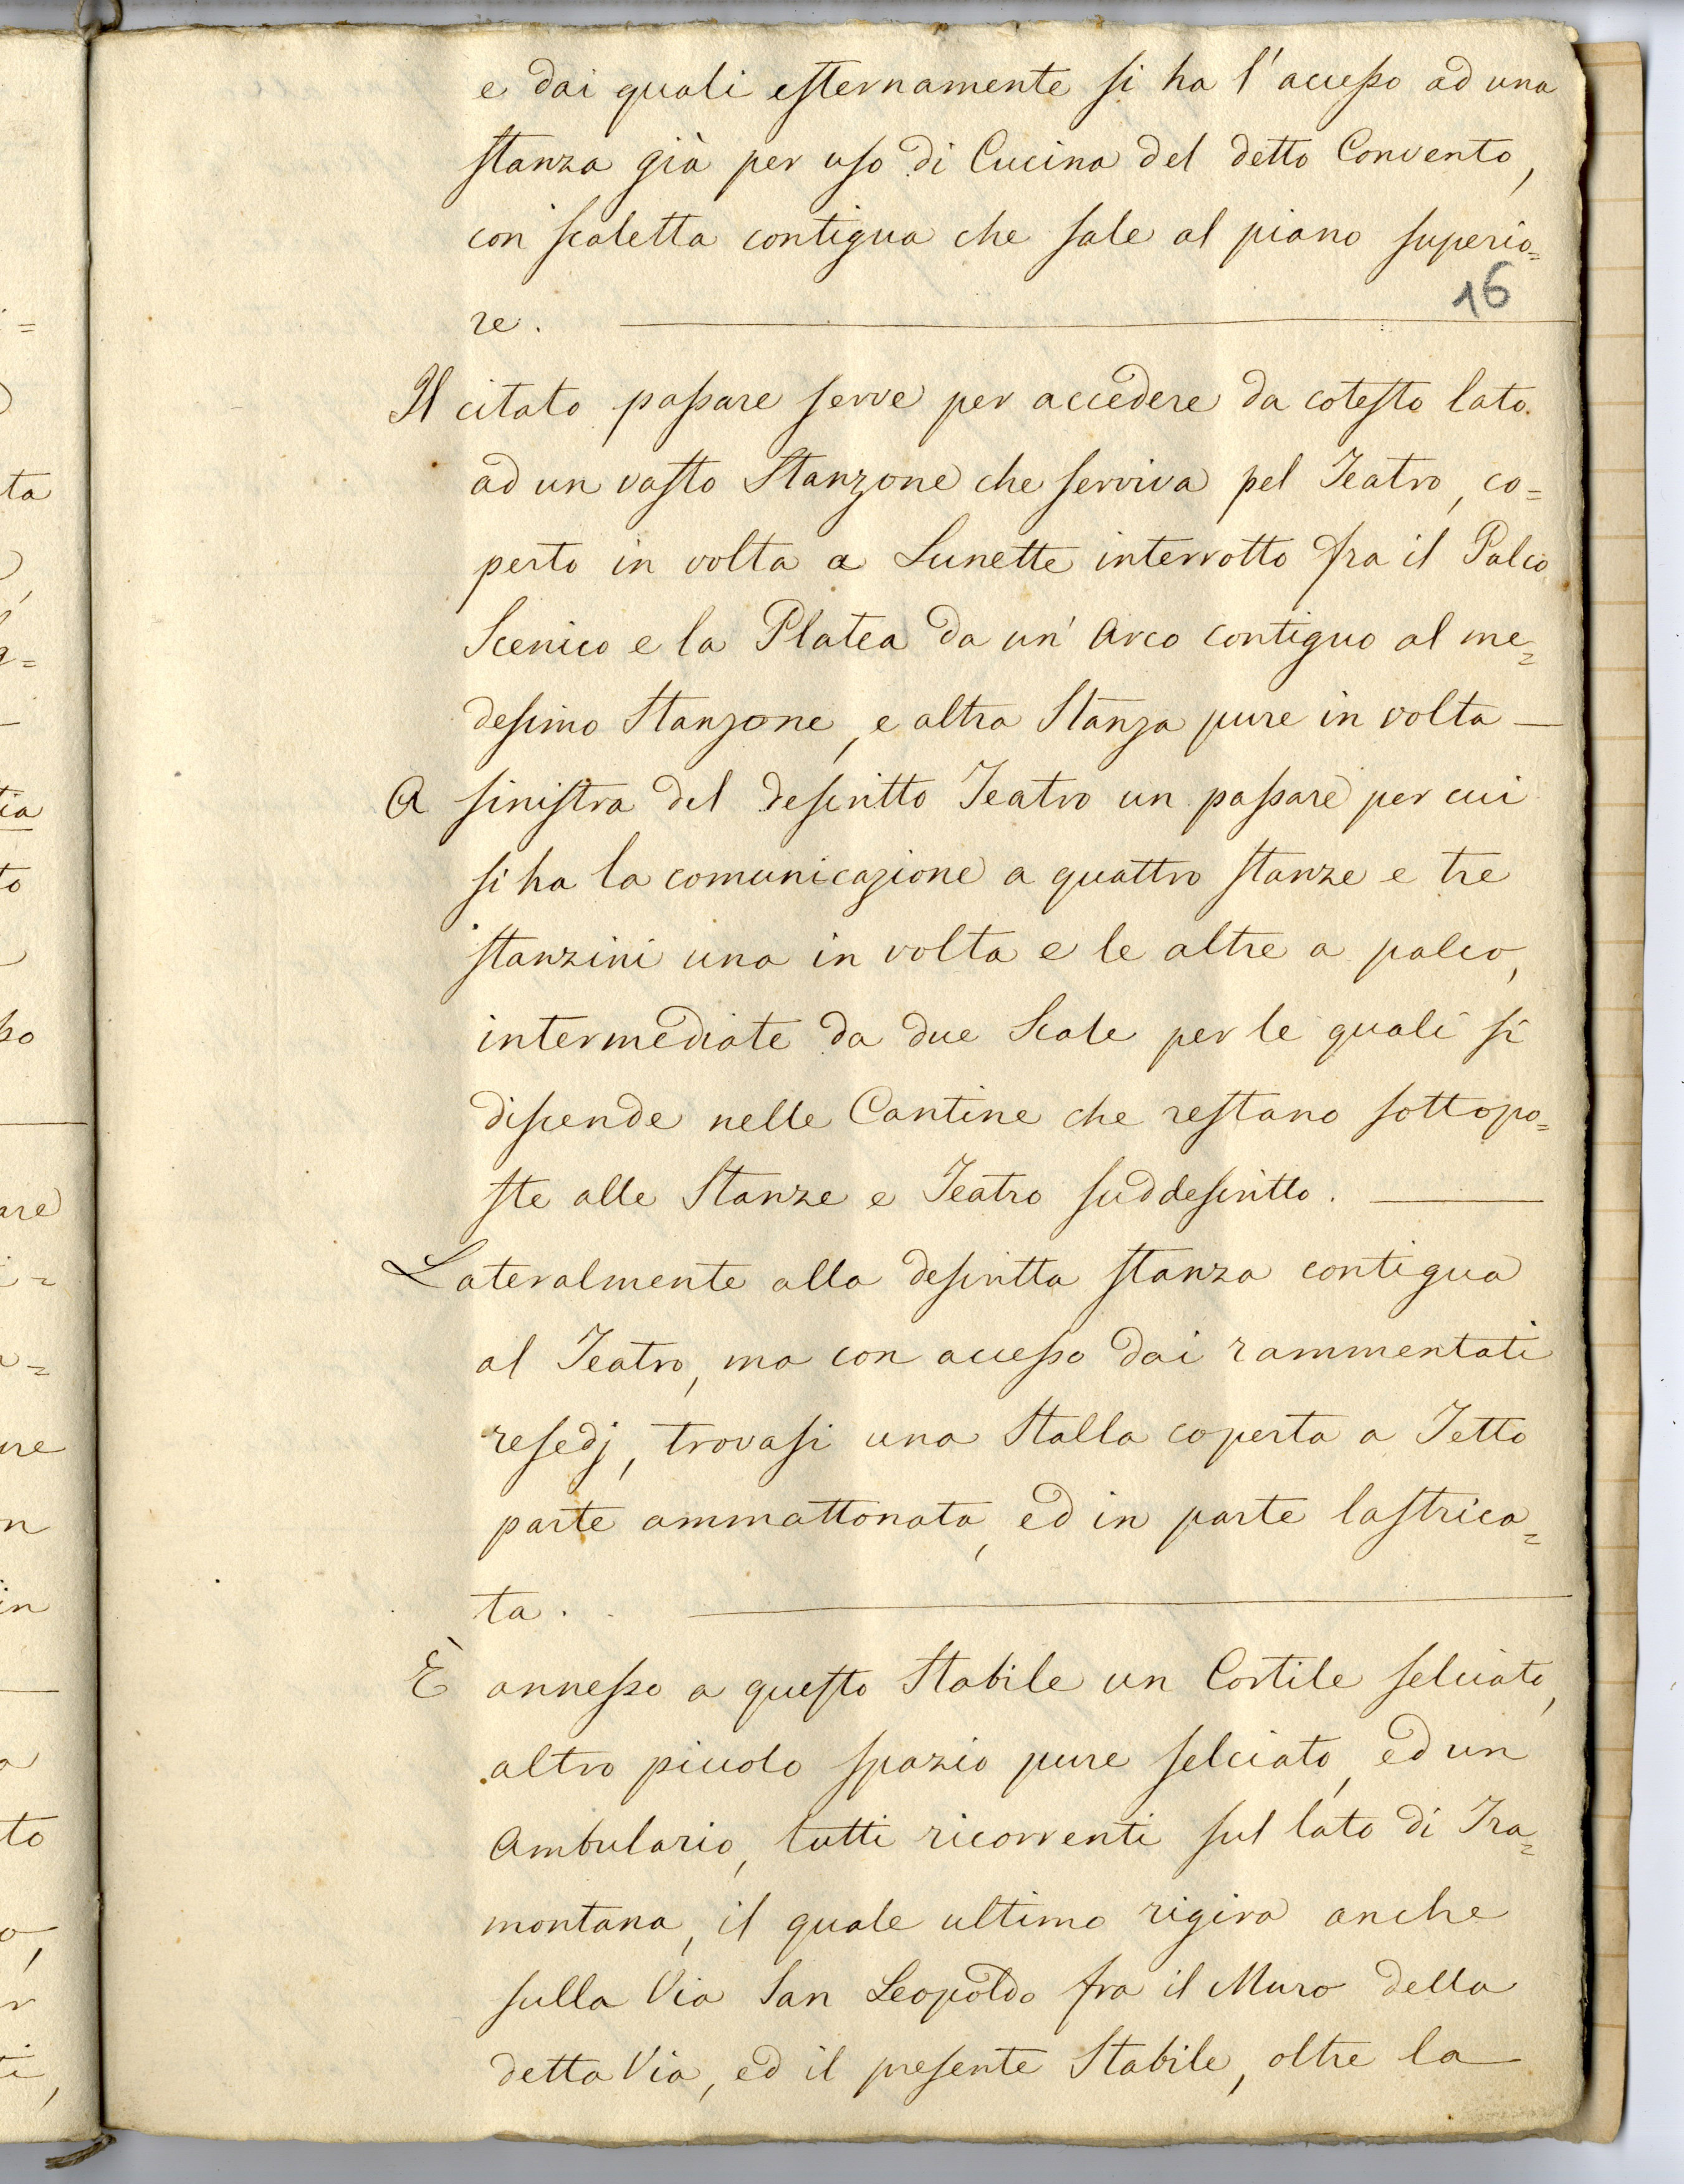 e dai quali esternamente si ha l'accesso ad una
stanza già per uso di Cucina del detto Convento,
con scaletta contigua che sale al piano superio=
16
re.
Il citato passare serve per accedere da cotesto lato
ad un vasto Stanzone che serviva pel Teatro, co=
perto in volta a Lunette interrotto fra il Palco
Scenico e la Platea da un' Arco contiguo al me=
desimo Stanzone, e altra Stanza pure in volta —
A sinistra del descritto Teatro un passare per cui
si ha la comunicazione a quattro stanze e tre
stanzini una in volta e le altre a palco,
intermediate da due Scale per le quali si
discende nelle Cantine che restano sottopo=
ste alle Stanze e Teatro suddescritto.
Lateralmente alla descritta stanza contigua
al Teatro, ma con accesso dai rammentati
resedj, trovasi una Stalla coperta a Tetto
parte ammattonata, ed in parte lastrica=
ta.
È annesso a questo Stabile un Cortile selciato,
altro piccolo spazio pure selciato, ed un
Ambulario, tutti ricorrenti sul lato di Tra=
montana, il quale ultimo rigira anche
sulla Via San Leopoldo fra il Muro della
detta Via, ed il presente Stabile, oltre la